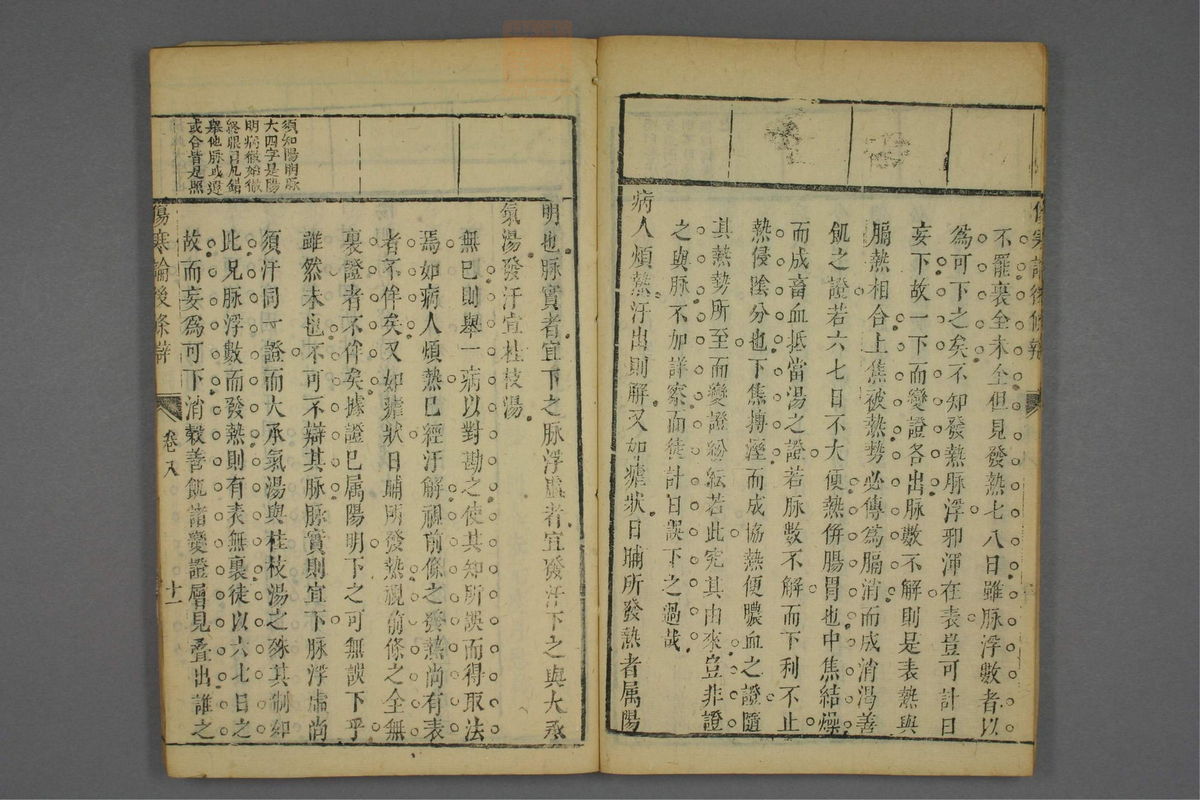 不罷裏全未全但見發熱七八日雖脉浮數者以
爲可下之矣不知發熱脉浮邪渾在表豈可計日
妄下故一下而變證各出脉數不解則是表熱與
膈熱相合上焦被熱勢必傳爲膈消而成消渴善
飢之證若六七日不大便熱併腸胃也中焦結燥
而成畜血抵當湯之證若脉數不解而下利不止
熱侵陰分也下焦搏溼而成協熱便膿血之證隨
其熱勢所至而變證紛紜若此究其由來豈非證
之與脉不加詳察而徒計日誤下之過哉
病人煩熱汗出則解又如瘧狀日晡所發熱者属陽
明也脉實者宜下之脉浮虛者宜發汗下之與大承
氣湯發汗宜桂枝湯
無已則舉一病以對勘之使其知所誤而得取法
焉如病人煩熱已經汗解視前條之發熱尚有表
者不侔矣又如瘧狀日晡所發熱視前條之全無
裏證者不侔矣據證已属陽明下之可無誤下乎
雖然未也不可不辯其脉脉實則宜下脉浮虛尚
須汗同一證而大承氣湯與桂枝湯之殊其制如
此兄脉浮數而發熱則有表無裏徒以六七日之
故而妄爲可下消穀善飢諸變證層見疊出誰之
須知陽明脉
大四字是陽
明病徹始徹
終眼目凡錯
舉他脉或遺
或合皆是照
傷寒論後條辯
卷八
十一